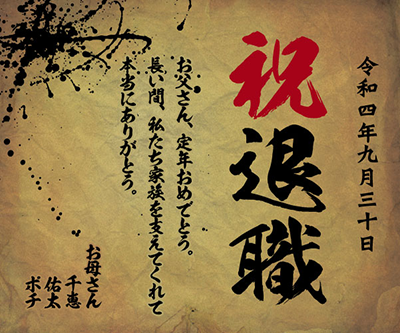 令和四年九月三十日
祝退職
お父さん、定年おめでとう。
長い間、私たち家族を支えてくれて
本当にありがとう。
お母さん
千恵
佑太
ポチ